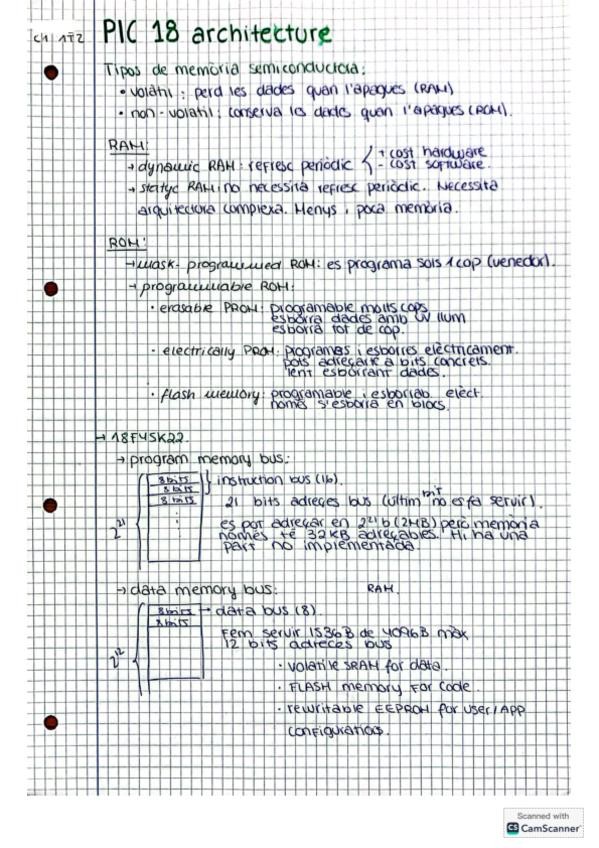 CH 1 i 2
PIC 18 architecture
Tipos de memòria semiconductora:
• volàtil : perd les dades quan l'apagues (RAM)
• non-volatil : conserva les dades quan l'apagues (ROM).
RAM:
→ dynamic RAM : refresc periòdic
+ cost hardware
- cost software.
→ statyc RAM: no necessita refresc periòdic. Necessita
arquitectura complexa. Menys i poca memòria.
ROM:
→ mask-programmed ROM: es programa sols 1 cop (venedor).
→ programmable ROM:
• erasable PROM: programable molts cops
esborra dades amb UV llum
esborra tot de cop.
• electrically PROM: programas i esborres elèctricament.
pots adreçarte a bits concrets.
lent esborrant dades.
• flash memory: programable i esborrab. elèct.
només s'esborra en blocs.
→ 18F45K22.
→ program memory bus:
8 bits
8 bits
8 bits
instruction bus (16).
21 bits adreçes bus (últim bit no es fa servir).
2²¹
es pot adreçar en 2²¹ b (2MB) però memòria
només té 32KB adreçables. Hi ha una
part no implementada.
→ data memory bus: RAM.
8 bits → data bus (8)
8 bits
Fem servir 1536B de 4096B màx
12 bits adreces bus
2¹²
• volatile SRAM for data.
• FLASH memory For Code.
• rewritable EEPROM for user/APP
configurations.
Scanned with
CS CamScanner